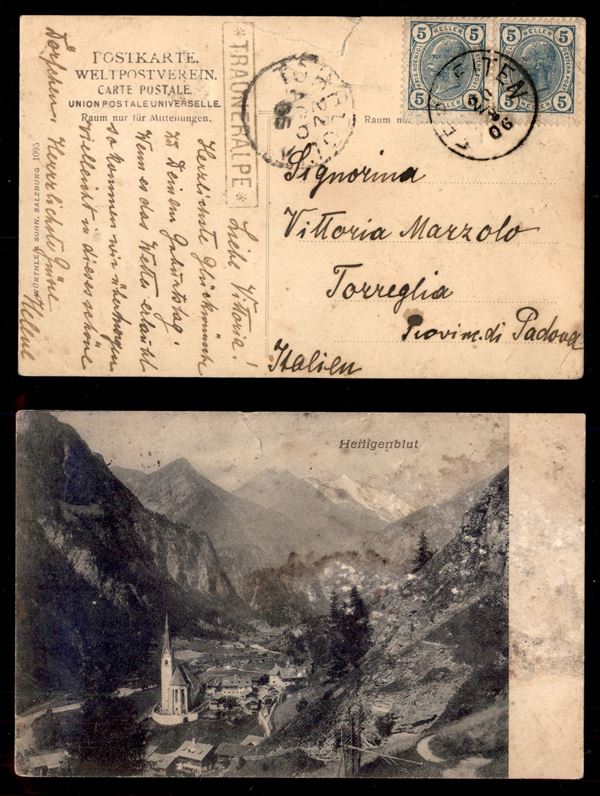 POSTKARTE.
WELTPOSTVEREIN.
CARTE POSTALE.
UNION POSTALE UNIVERSELLE.
Raum nur für Mitteilungen.
* TRAUNERALPE *
Raum nur
5 HELLER 5
5 5
5 HELLER 5
5 5
06
Liebe Vittoria!
Herzlichste Glückwünsche
zu Deinem Geburtstag.
Wenn es das Wetter erlaubt
so kommen wir übermorgen
Vielleicht in dieses schöne
Herzlichste Grüsse
Helene
WÜRTHLE & SOHN, SALZBURG 1005
Signorina
Vittoria Marzolo
Torreglia
Provin. di Padova
Italien
Heiligenblut